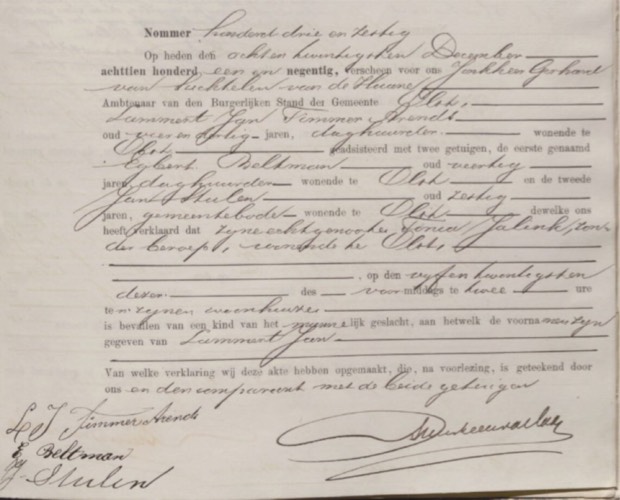 Nommer honderd drie en zestig
Op heden den achten twintigsten December
achttien honderd een en negentig, verscheen voor ons Jonkheer Gerhard
van Suchtelen van de Haare
Ambtenaar van den Burgerlijken Stand der Gemeente Olst,
Lammert Jan Timmer Arends
oud vier en dertig jaren, daghuurder wonende te
Olst geadsisteerd met twee getuigen, de eerste genaamd
Egbert Beltman oud veertig
jaren, daghuurder wonende te Olst en de tweede
Jan Stulen oud zestig
jaren, gemeentebode wonende te Olst dewelke ons
heeft verklaard dat zyne echtgenoote, Jalink, zon-
der beroep, wonende te Olst,
, op den vyf en twintigsten
dezer des voormiddags te twee ure
te zynen woonhuize
is bevallen van een kind van het mannelijk geslacht, aan hetwelk de voornamen zyn
gegeven van Lammert Jan
Van welke verklaring wij deze akte hebben opgemaakt, die, na voorlezing, is geteekend door
ons en den comparant met de beide getuigen
L J Timmer Arends
E Beltman
J Stulen